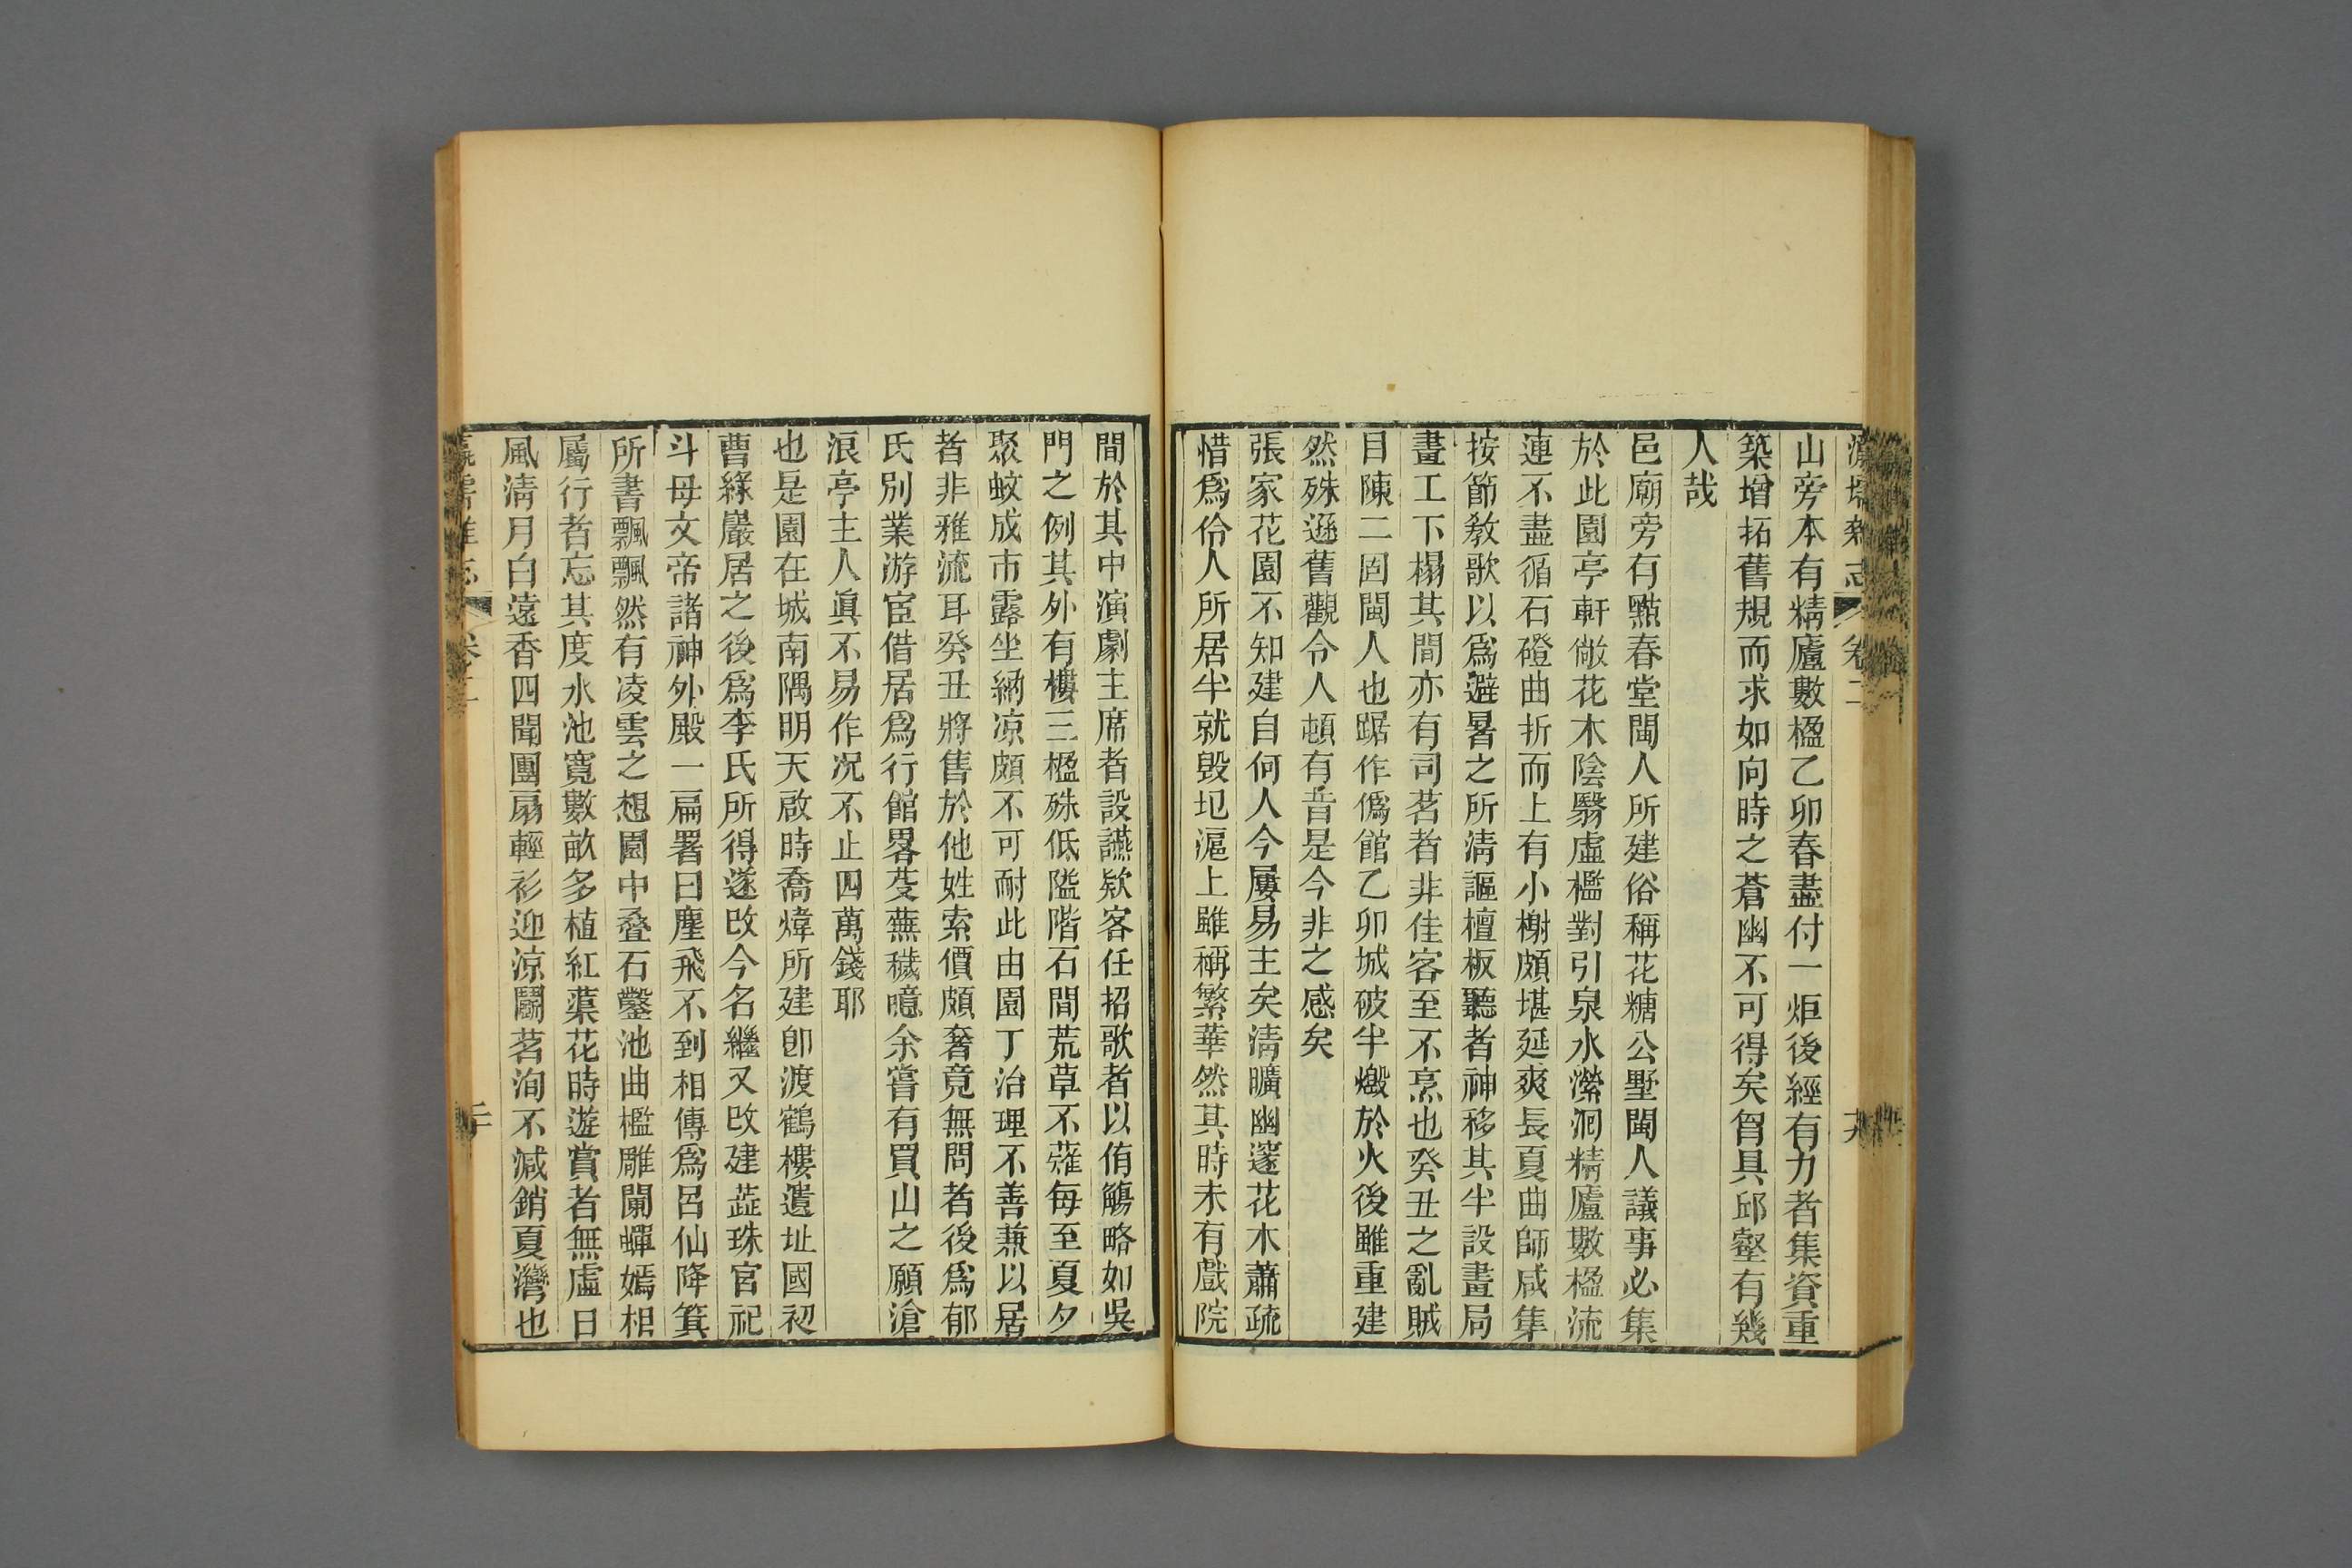 瀛壖雜志 卷二 十九
山旁本有精廬數楹乙卯春盡付一炬後經有力者集資重
築增拓舊規而求如向時之蒼幽不可得矣胷具邱壑有幾
人哉
邑廟旁有點春堂閩人所建俗稱花糖公墅閩人議事必集
於此園亭軒敞花木陰翳虛檻對引泉水瀠洄精廬數楹流
連不盡循石磴曲折而上有小榭頗堪延爽長夏曲師咸集
按節敎歌以爲避暑之所淸謳檀板聽者神移其半設畫局
畫工下榻其間亦有司茗者非佳客至不烹也癸丑之亂賊
目陳二固閩人也踞作僞館乙卯城破半燬於火後雖重建
然殊遜舊觀令人頓有昔是今非之感矣
張家花園不知建自何人今屢易主矣淸曠幽邃花木蕭疏
惜爲伶人所居半就毀圮滬上雖稱繁華然其時未有戲院
間於其中演劇主席者設讌欵客任招歌者以侑觴略如吳
門之例其外有樓三楹殊低隘階石間荒草不薙每至夏夕
聚蚊成市露坐納凉頗不可耐此由園丁治理不善兼以居
者非雅流耳癸丑將售於他姓索價頗奢竟無問者後爲郁
氏別業游宦借居爲行館畧芟蕪穢噫余嘗有買山之願滄
浪亭主人眞不易作況不止四萬錢耶
也是園在城南隅明天啟時喬煒所建卽渡鶴樓遺址國初
曹綠巖居之後爲李氏所得遂改今名繼又改建蕋珠宮祀
斗母文帝諸神外殿一扁署曰塵飛不到相傳爲呂仙降箕
所書飄飄然有凌雲之想園中疊石鑿池曲檻雕闌蟬嫣相
屬行者忘其度水池寬數畝多植紅蕖花時遊賞者無虛日
風淸月白遠香四聞團扇輕衫迎凉鬭茗洵不減銷夏灣也
瀛壖雜志 卷二 二十